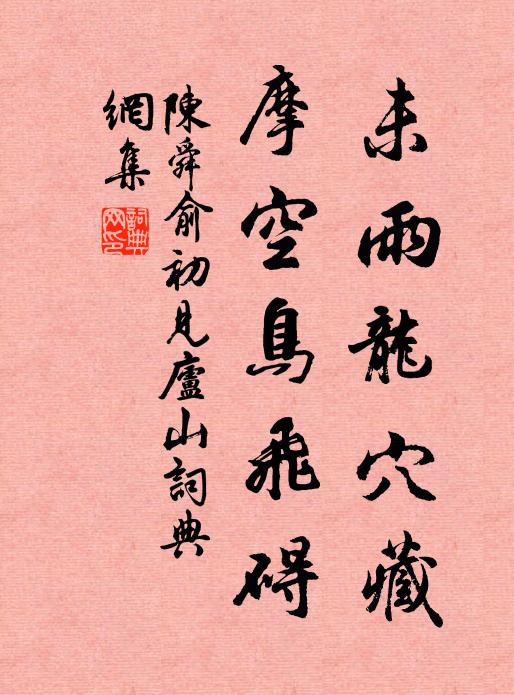 未雨龍穴藏
摩空鳥飛碍
陳舜俞初見廬山詞典
網集
詞典
网印